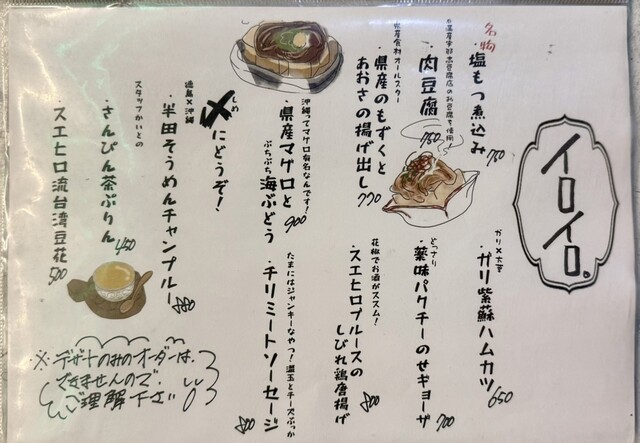 イロイロ。
名物
・塩もつ煮込み 750
ガリ×大葉
・ガリ紫蘇ハムカツ 650
・肉豆腐 750
どっさり
・薬味パクチーのせギョーザ 700
県産食材オールスター
・県産のもずくと
あおさの揚げ出し 770
花椒でお酒がススム！
・スエヒロブルースの
しびれ鶏唐揚げ 800
沖縄ってマグロ有名なんです！
・県産マグロと
ぷちぷち海ぶどう 900
たまにはジャンキーなやつ！温玉とチーズぶっか
・チリミートソーセージ 800
〆にどうぞ！
しめ
徳島×沖縄
・半田そうめんチャンプルー 880
スタッフかいとの
・さんぴん茶ぷりん 450
・スエヒロ流台湾豆花 500
※デザートのみのオーダーは、
できませんので、
ご理解下さい